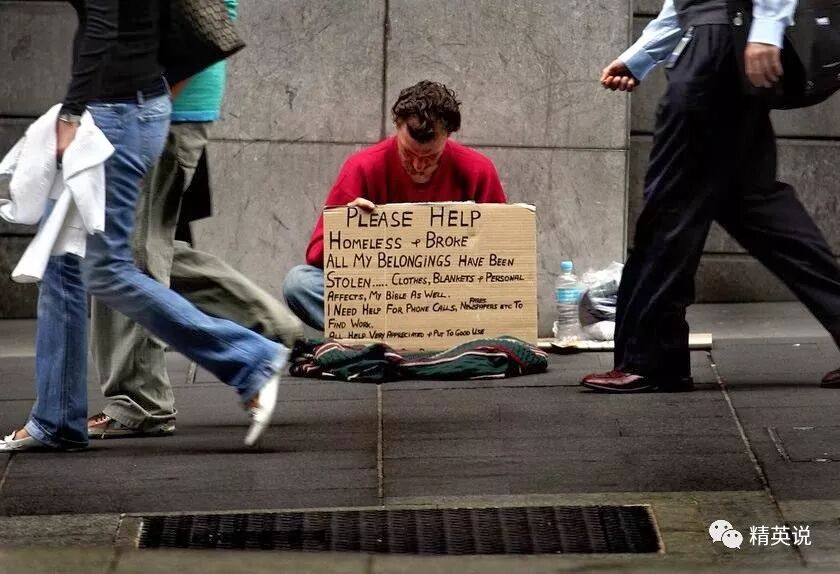 PLEASE HELP
HOMELESS + BROKE
ALL MY BELONGINGS HAVE BEEN
STOLEN..... CLOTHES, BLANKETS + PERSONAL
AFFECTS, MY BIBLE AS WELL.
FARES
I NEED HELP FOR PHONE CALLS, NEWSPAPERS ETC TO
FIND WORK.
ALL HELP VERY APPRECIATED + PUT TO GOOD USE
精英说